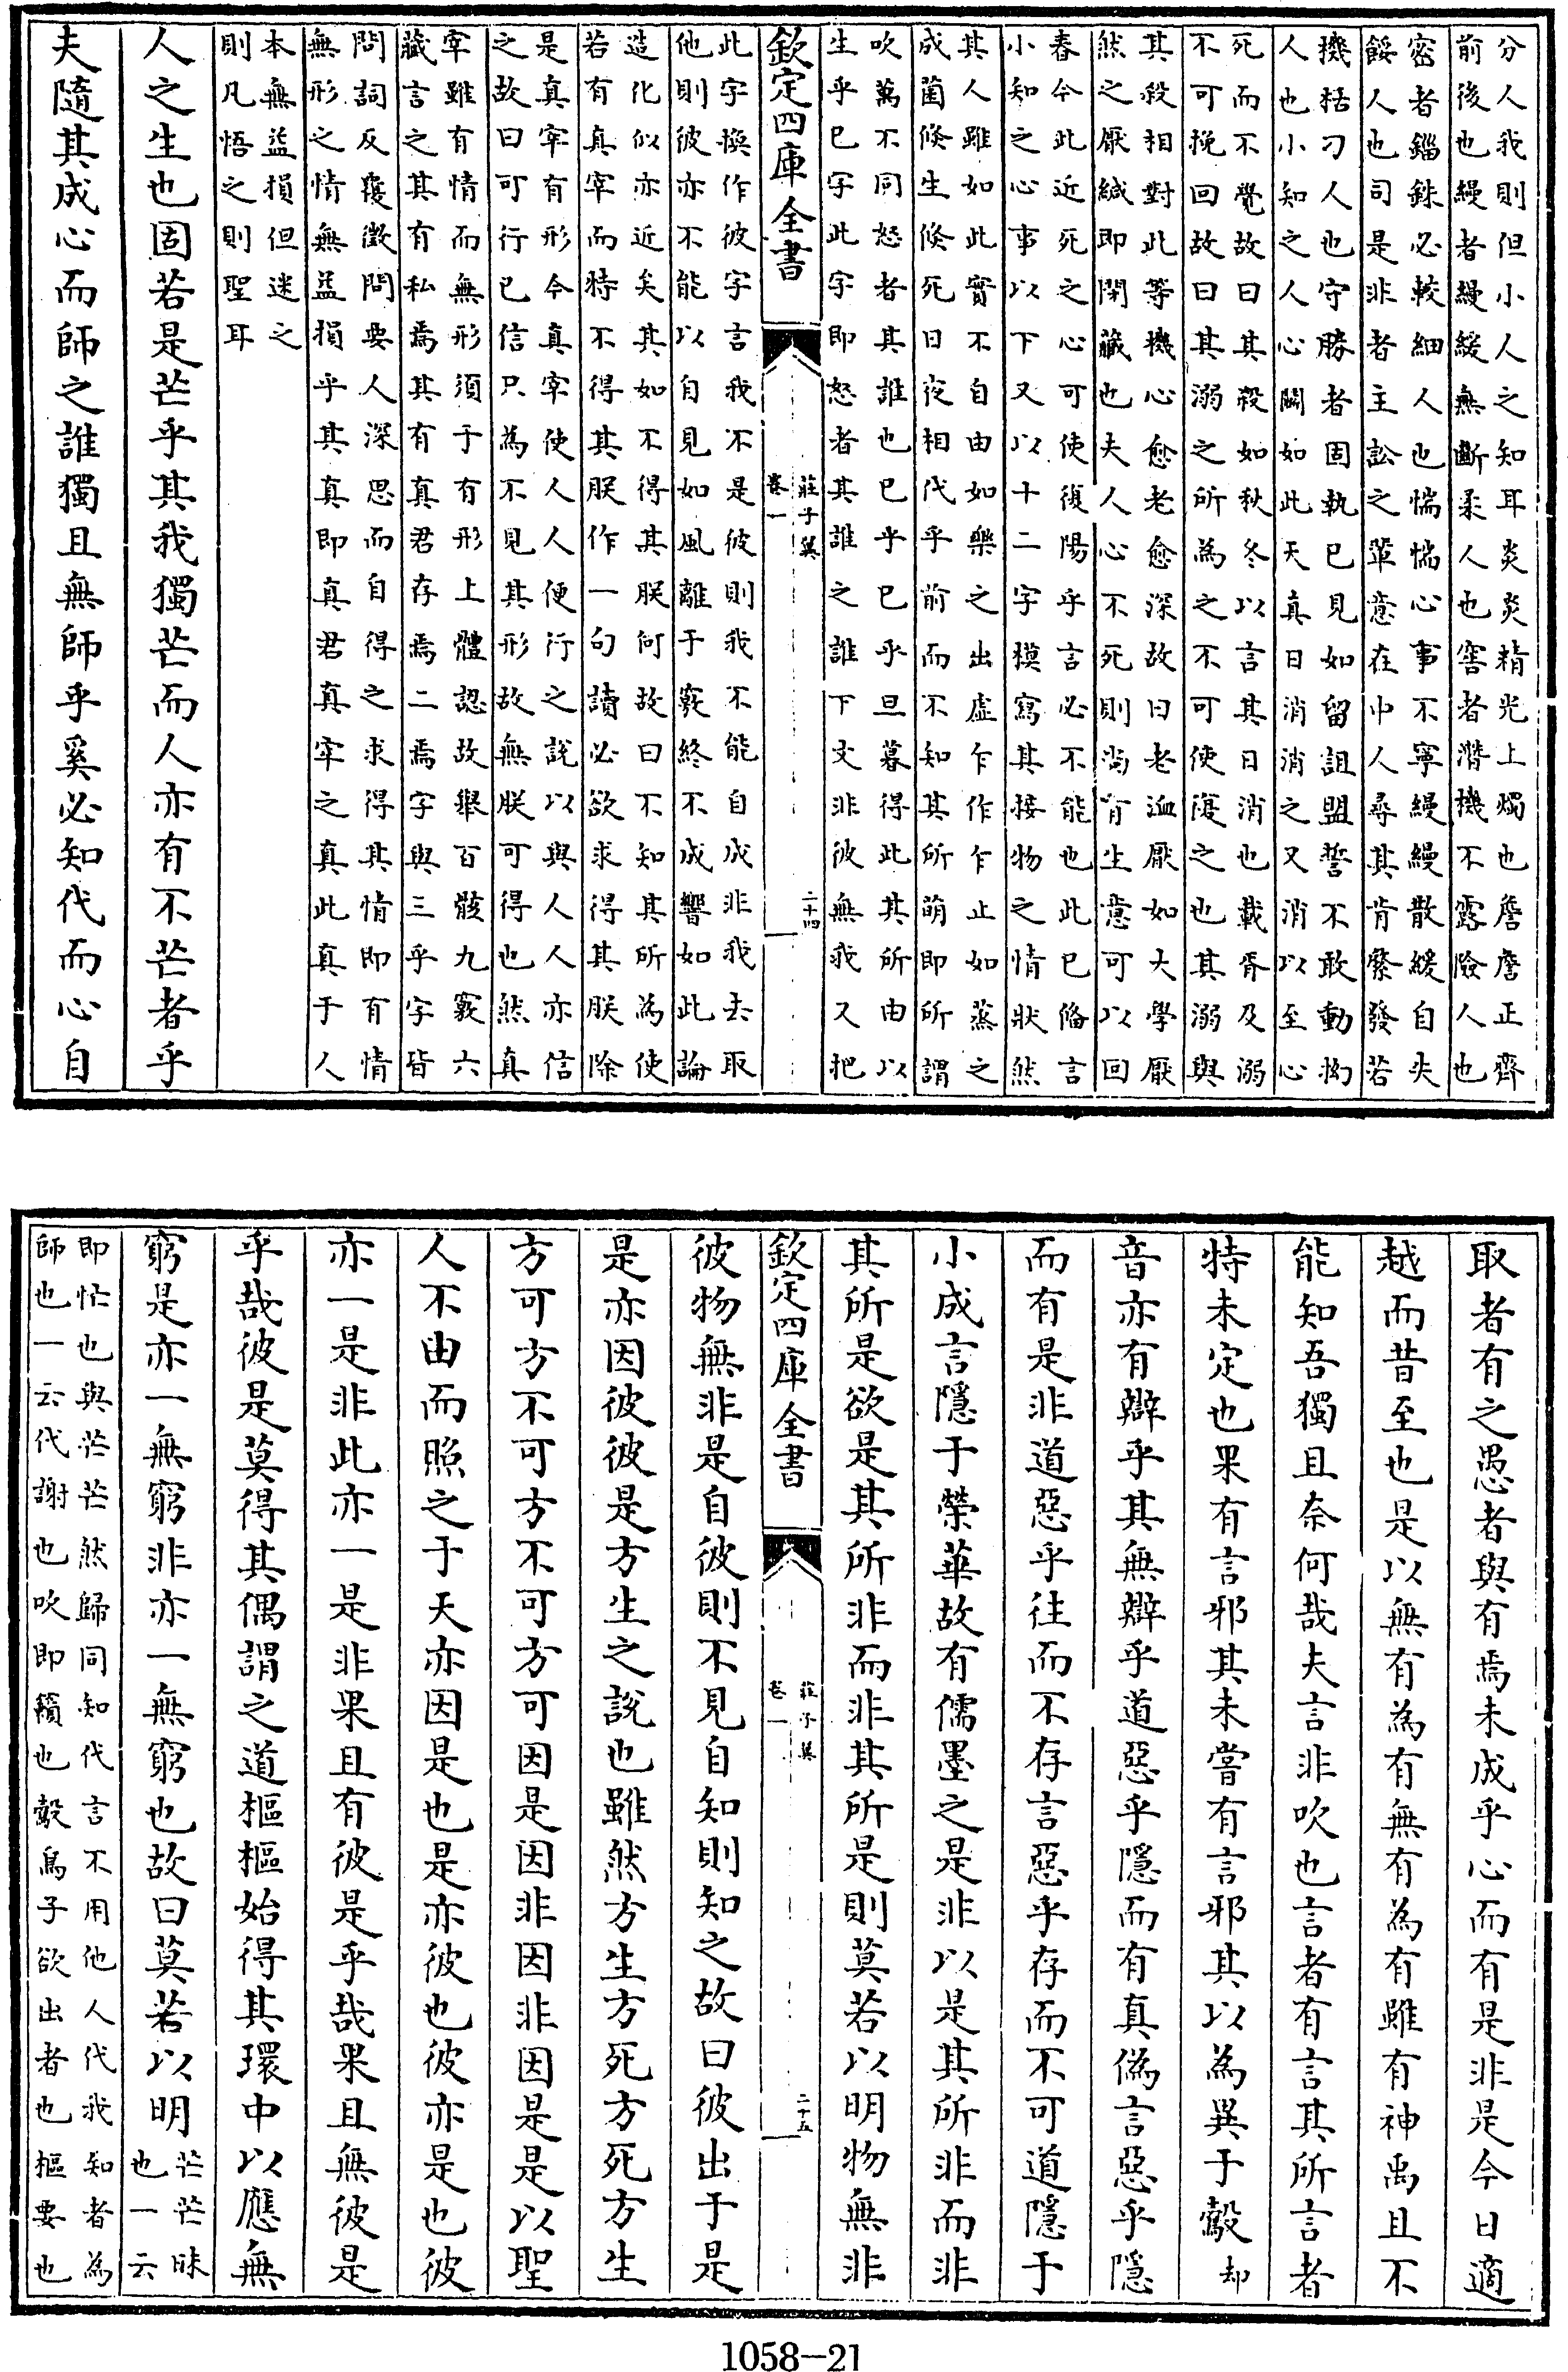 分人我則但小人之知耳炎炎精光上燭也詹詹正齊
前後也縵者縵緩無斷柔人也窖者潛機不露險人也
密者錙銖必較細人也惴惴心事不寧縵縵散緩自失
餒人也司是非者主訟之輩意在中人尋其肯綮發若
機括刁人也守勝者固執已見如留詛盟誓不敢動拗
人也小知之人心鬭如此天真日消消之又消以至心
死而不覺故曰其殺如秋冬以言其日消也載胥及溺
不可挽回故曰其溺之所為之不可使復之也其溺與
其殺相對此等機心愈老愈深故曰老洫厭如大學厭
然之厭緘即閉藏也夫人心不死則尚有生意可以回
春今此近死之心可使復陽乎言必不能也此已備言
小知之心事以下又以十二字模寫其接物之情狀然
其人雖如此實不自由如樂之出虛乍作乍止如蒸之
成菌倏生倏死日夜相代乎前而不知其所萌即所謂
吹萬不同怒者其誰也已乎已乎旦暮得此其所由以
生乎已字此字即怒者其誰之誰下文非彼無我又把
欽定四庫全書
莊子翼
卷一
二十四
此字換作彼字言我不是彼則我不能自成非我去取
他則彼亦不能以自見如風離于竅終不成響如此論
造化似亦近矣其如不得其朕何故曰不知其所為使
若有真宰而特不得其朕作一句讀必欲求得其朕除
是真宰有形今真宰使人人便行之說以與人人亦信
之故曰可行已信只為不見其形故無朕可得也然真
宰雖有情而無形須于有形上體認故舉百骸九竅六
藏言之其有私焉其有真君存焉二焉字與三乎字皆
問詞反覆徵問要人深思而自得之求得其情即有情
無形之情無益損乎其真即真君真宰之真此真于人
本無益損但迷之
則凡悟之則聖耳
人之生也固若是芒乎其我獨芒而人亦有不芒者乎
夫隨其成心而師之誰獨且無師乎奚必知代而心自
取者有之愚者與有焉未成乎心而有是非是今日適
越而昔至也是以無有為有無有為有雖有神禹且不
能知吾獨且奈何哉夫言非吹也言者有言其所言者
特未定也果有言邪其未嘗有言邪其以為異于鷇却
音亦有辯乎其無辯乎道惡乎隱而有真偽言惡乎隱
而有是非道惡乎往而不存言惡乎存而不可道隱于
小成言隱于榮華故有儒墨之是非以是其所非而非
其所是欲是其所非而非其所是則莫若以明物無非
欽定四庫全書
莊子翼
卷一
二十五
彼物無非是自彼則不見自知則知之故曰彼出于是
是亦因彼彼是方生之說也雖然方生方死方死方生
方可方不可方不可方可因是因非因非因是是以聖
人不由而照之于天亦因是也是亦彼也彼亦是也彼
亦一是非此亦一是非果且有彼是乎哉果且無彼是
乎哉彼是莫得其偶謂之道樞樞始得其環中以應無
窮是亦一無窮非亦一無窮也故曰莫若以明
芒芒昧
也一云
即忙也與茫茫然歸同知代言不用他人代我知者為
師也一云代謝也吹即籟也鷇鳥子欲出者也樞要也
1058-21